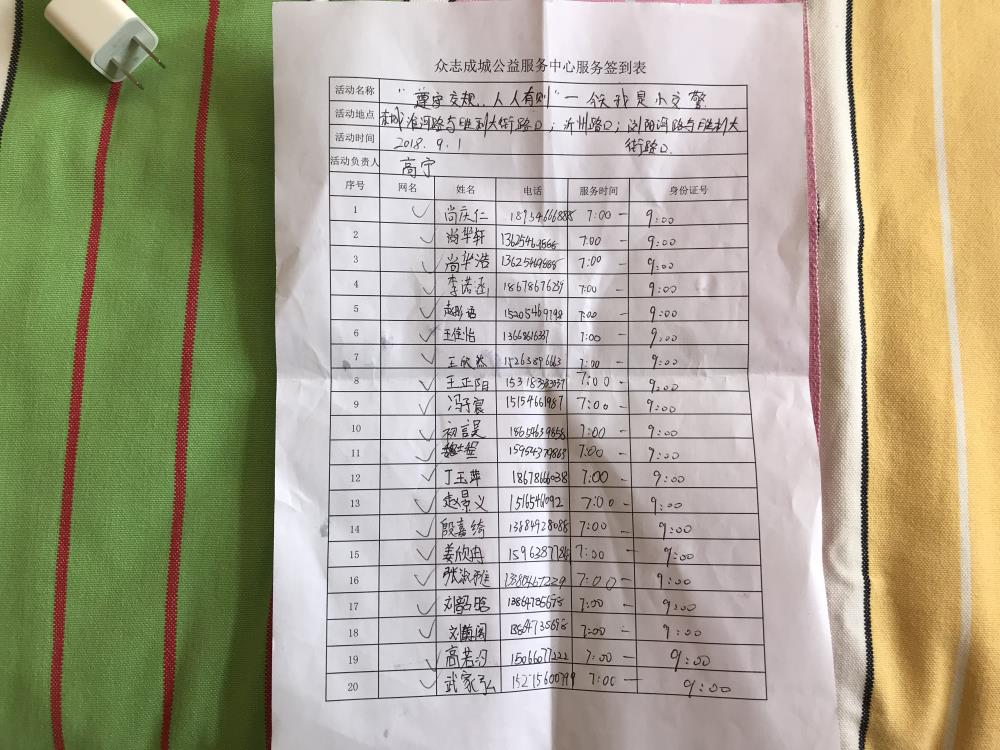 众志成城公益服务中心服务签到表
活动名称 "遵守交规，人人有则"一今天我是小交警
活动地点 东城淮河路与胜利大街路口；沂州路口；浏阳河路与胜利大
街路口
活动时间 2018.9.1
活动负责人 高宁
序号 网名 姓名 电话 服务时间 身份证号
1 ✓ 尚庆仁 7:00 — 9:00
2 ✓ 尚华轩 7:00 — 9:00
3 ✓ 尚华浩 7:00 — 9:00
4 ✓ 李诺函 18678676239 7:00 — 9:00
5 ✓ 15205469798 7:00 — 9:00
6 ✓ 王佳怡 7:00 — 9:00
7 ✓ 王欣然 15263896663 7:00 — 9:00
8 ✓ 王正阳 7:00 — 9:00
9 ✓ 冯子宸 15154661987 7:00 — 9:00
10 ✓ 初言昊 18654639858 7:00 — 9:00
11 ✓ 15954379863 7:00 — 9:00
12 ✓ 丁玉萍 18678666038 7:00 — 9:00
13 ✓ 赵景义 7:00 — 9:00
14 ✓ 殷嘉绮 13884928088 7:00 — 9:00
15 ✓ 姜欣冉 7:00 — 9:00
16 ✓ 13804672229 7:00 — 9:00
17 ✓ 刘韶晗 13864735698 7:00 — 9:00
18 ✓ 13864735698 7:00 — 9:00
19 ✓ 高若汐 15066077222 7:00 — 9:00
20 ✓ 武家弘 15215600799 7:00 — 9:00